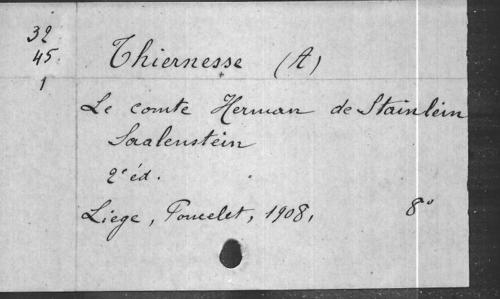 32
45
1
Thiernesse (A)
Le comte Herman de Stainlein
Saalenstein
2e éd.
Liege, Poncelet, 1908, 8°